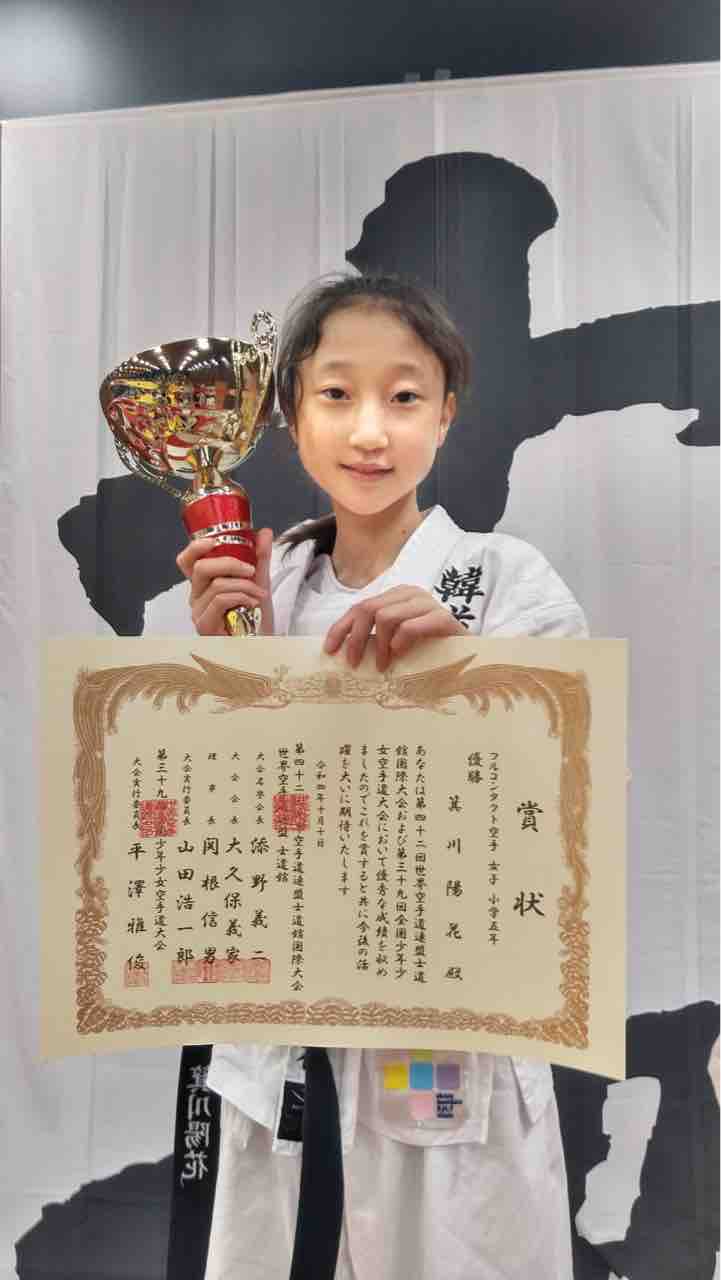 賞状
フルコンタクト空手 女子 小学五年
優勝
箕川陽花 殿
あなたは第四十二回世界空手道連盟士道
館国際大会および第三十九回全国少年少
女空手道大会において優秀な成績を収め
ましたのでこれを賞すると共に今後の活
躍を大いに期待いたします
令和四年十月十日
第四十二 空手道連盟士道館国際大会
世界空手道連盟 士道館
大会名誉会長 添野義二
大会会長 大久保義家
理事長 関根信男
大会実行委員長 山田浩一郎
第三十九 少年少女空手道大会
大会実行委員長 平澤雅俊
韓
箕川陽花